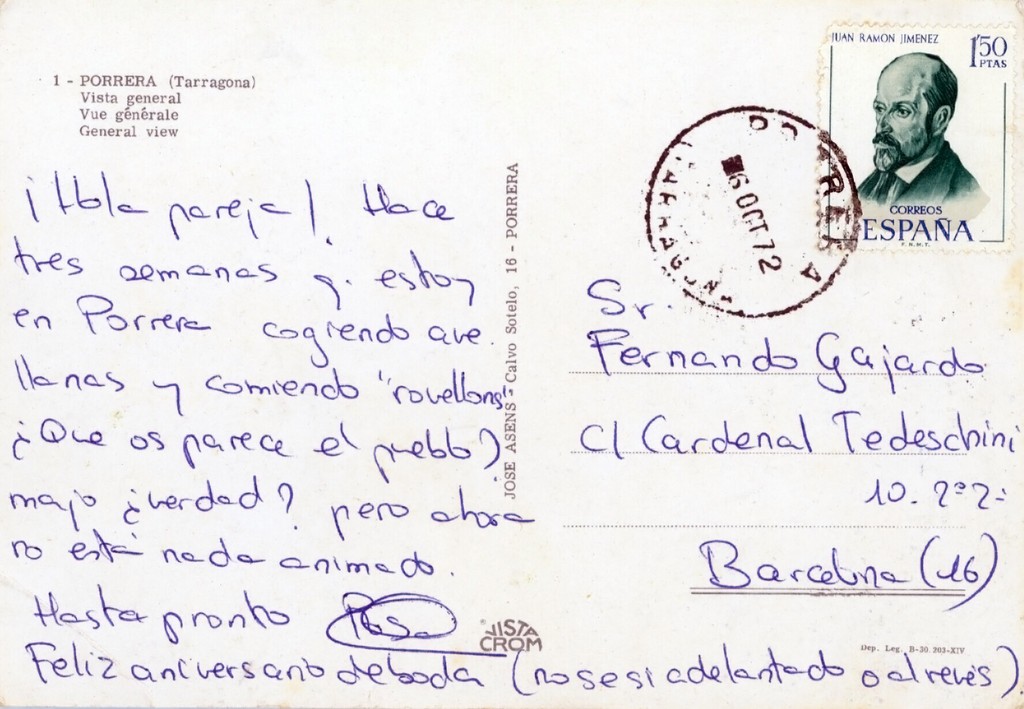 1 - PORRERA (Tarragona)
Vista general
Vue générale
General view
JUAN RAMON JIMENEZ
1'50
PTAS
CORREOS
ESPAÑA
F.N.M.T.
PORRERA
6 OCT 72
TARRAGONA
¡Hola pareja! Hace
tres semanas q. estoy
en Porrera cogiendo ave.
llanas y comiendo "rovellons"
¿Que os parece el pueblo?
majo ¿verdad? pero ahora
no está nada animado.
Hasta pronto Rosa
Feliz aniversario de boda (no se si adelantado o al revés).
JOSE ASENS - Calvo Sotelo, 16 - PORRERA
Sr.
Fernando Gajardo
C/ Cardenal Tedeschini
10. 2º 2ª
Barcelona (16)
VISTA
CROM
Dep. Leg. B-30.203-XIV